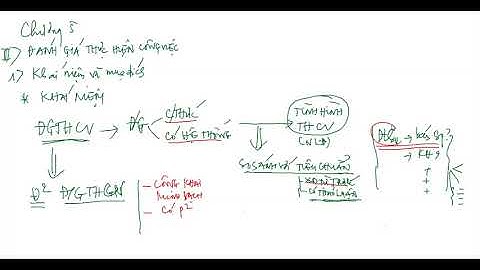 Chương 5
II) ĐÁNH GIÁ THỰC HIỆN CÔNG VIỆC
1) Khái niệm và mục đích
* KHÁI NIỆM
ĐGTHCV → ĐG
C/THỨC
CÓ HỆ THỐNG
TÌNH HÌNH
THCV
(NLĐ)
SO SÁNH VỚI TIÊU CHUẨN
CÓ THẢO LUẬN
Đ² ĐGTHCV
- CÔNG KHAI
MINH BẠCH
- CÓ P²